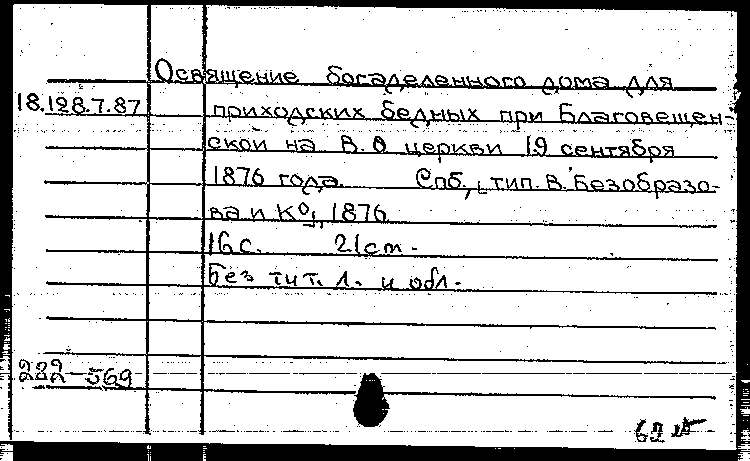 Освящение богаделенного дома для
18.128.7.87 приходских бедных при Благовещен-
ской на В. О церкви 19 сентября
1876 года. Спб., тип. В. Безобразо-
ва и К°, 1876
16 с. 21 cm.
Без тит. л. и обл.
232-569
62